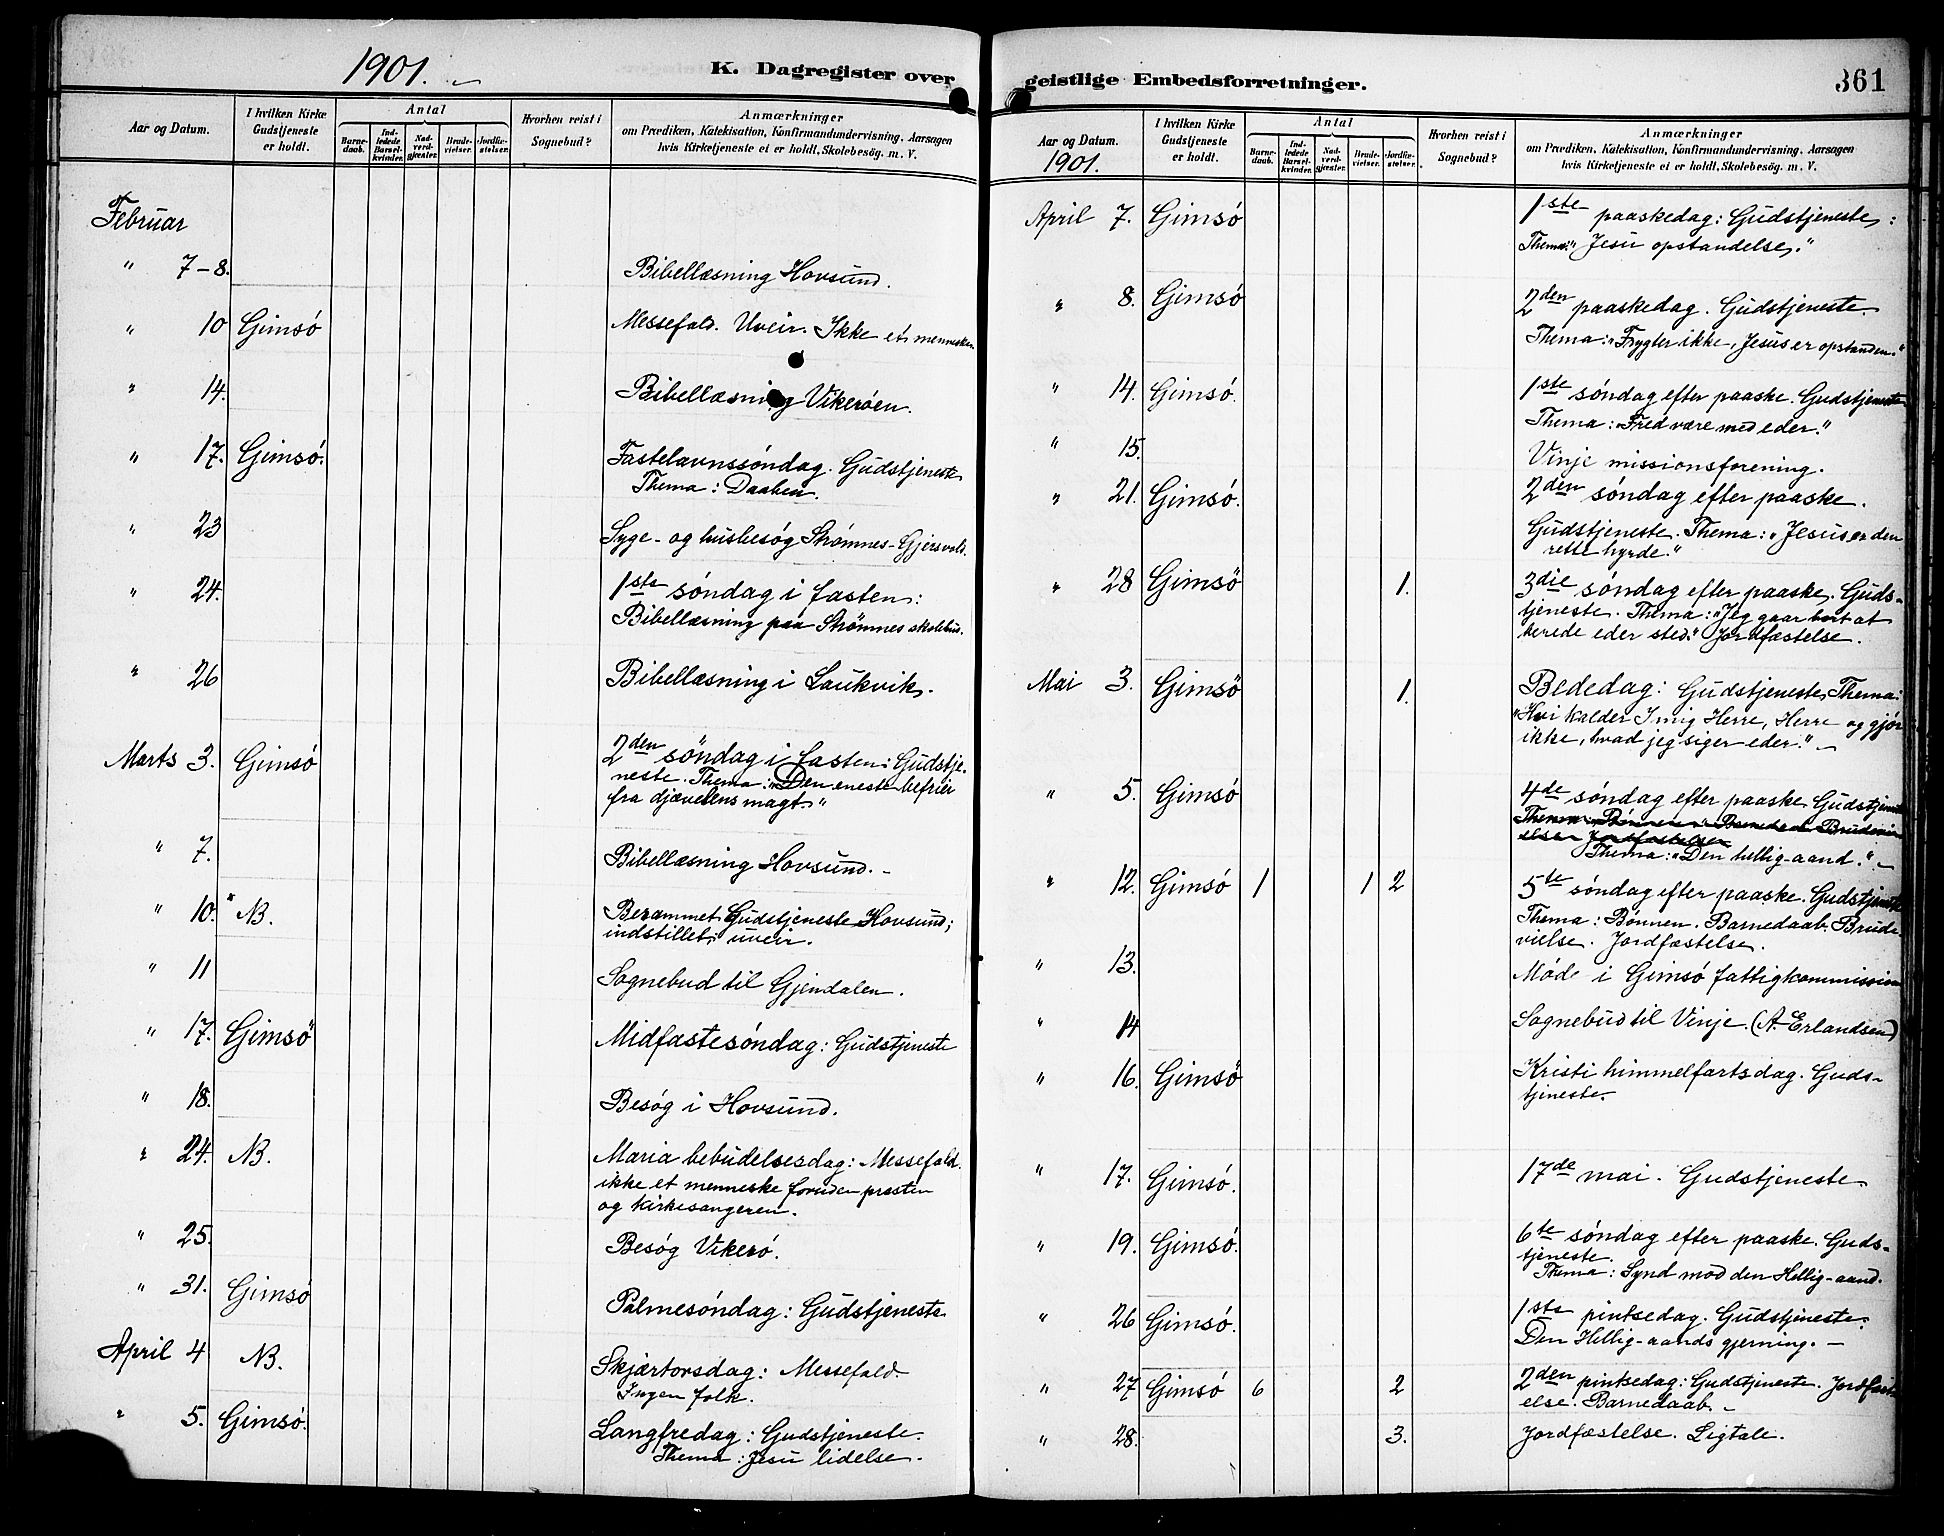 1901.
K. Dagregister over
Aar og Datum. I hvilken Kirke Gudstjeneste er holdt. Antal Barnedaab. Indledede Barselkvinder. Nadverdgjester. Brudevielser. Jordfæstelser. Hvorhen reist i Sognebud? Anmærkninger om Prædiken, Katekisation, Konfirmandundervisning, Aarsagen hvis Kirketjeneste ei er holdt, Skolebesøg. m. V.
Februar
" 7-8. Bibellæsning Hovsund.
" 10 Gimsö Messefald. Uveir. Ikke et menneske.
" 14. Bibellæsning Vikerøen.
" 17. Gimsö. Fastelavnssöndag. Gudstjeneste
Thema: Daaben.
" 23 Syge- og husbesög Strømnes-Gjersvold.
" 24. 1ste söndag i fasten:
Bibellæsning paa Strömnes skolehus.
" 26 Bibellæsning i Laukvik.
Marts 3. Gimsö 2den söndag i fasten: Gudstje-
neste. Thema: "Den eneste befrier
fra djævelens magt."
" 7. Bibellæsning Hovsund. -
" 10. " NB. Berammet Gudstjeneste Hovsund;
indstillet; uveir.
" 11 Sognebud til Gjendalen.
" 17. Gimsö Midfastesöndag: Gudstjeneste
" 18. Besög i Hovsund.
" 24. NB. Maria bebudelsesdag: Messefald.
ikke et menneske foruden præsten
og kirkesangeren.
" 25. Besög Vikerö.
" 31. Gimsö Palmesöndag: Gudstjeneste
April 4 NB. Skjærtorsdag: Messefald.
Ingen folk.
" 5. Gimsö. Langfredag: Gudstjeneste.
Thema: Jesu lidelse.
geistlige Embedsforretninger.
361
Aar og Datum. I hvilken Kirke Gudstjeneste er holdt. Antal Barnedaab. Indledede Barselkvinder. Nadverdgjester. Brudevielser. Jordfæstelser. Hvorhen reist i Sognebud? Anmærkninger om Prædiken, Katekisation, Konfirmandundervisning, Aarsagen hvis Kirketjeneste ei er holdt, Skolebesøg. m. V.
1901.
April 7. Gimsö 1ste paaskedag: Gudstjeneste:
Thema: "Jesu opstandelse."
" 8. Gimsö 2den paaskedag. Gudstjeneste.
Thema: "Frygter ikke, Jesus er opstanden."
" 14. Gimsö. 1ste söndag efter paaske. Gudstjeneste
Thema: "Fred være med eder."
" 15. Vinje missionsforening.
" 21. Gimsö. 2den söndag efter paaske.
Gudstjeneste. Thema: "Jesus er den
rette hyrde."
" 28 Gimsö 1. 3die söndag efter paaske. Guds-
tjeneste. Thema: "Jeg gaar bort at
berede eder sted." Jordfæstelse.
Mai 3. Gimsö 1. Bededag: Gudstjeneste, Thema:
"Hvi kalder I mig Herre, Herre og gjör
ikke, hvad jeg siger eder." -
" 5. Gimsö 4de söndag efter paaske Gudstjeneste
Thema: Bönnen. Barnedaab. Brudevi-
elser Jordfæstelser
Thema: "Den hellig-aand." -
" 12. Gimsö 1 1 2 5te söndag efter paaske. Gudstjeneste
Thema: Bönnen. Barnedaab. Brude-
vielse. Jordfæstelse.
" 13. Möde i Gimsö fattigkommission
" 14 Sognebud til Vinje. (A. Erlandsen)
" 16. Gimsö Kristi himmelfartsdag. Guds-
tjeneste.
" 17. Gimsö. 17de mai. Gudstjeneste
" 19. Gimsö. 6te söndag efter paaske. Guds-
tjeneste.
Thema: Synd mod den Hellig-aand.
" 26 Gimsö. 1ste pintsedag. Gudstjeneste.
Den Hellig-aands gjerning. -
" 27 Gimsö 6 2 2den pintsedag: Gudstjeneste. Jordfæst-
else. Barnedaab. -
" 28. 3. Jordfæstelse. Ligtale.